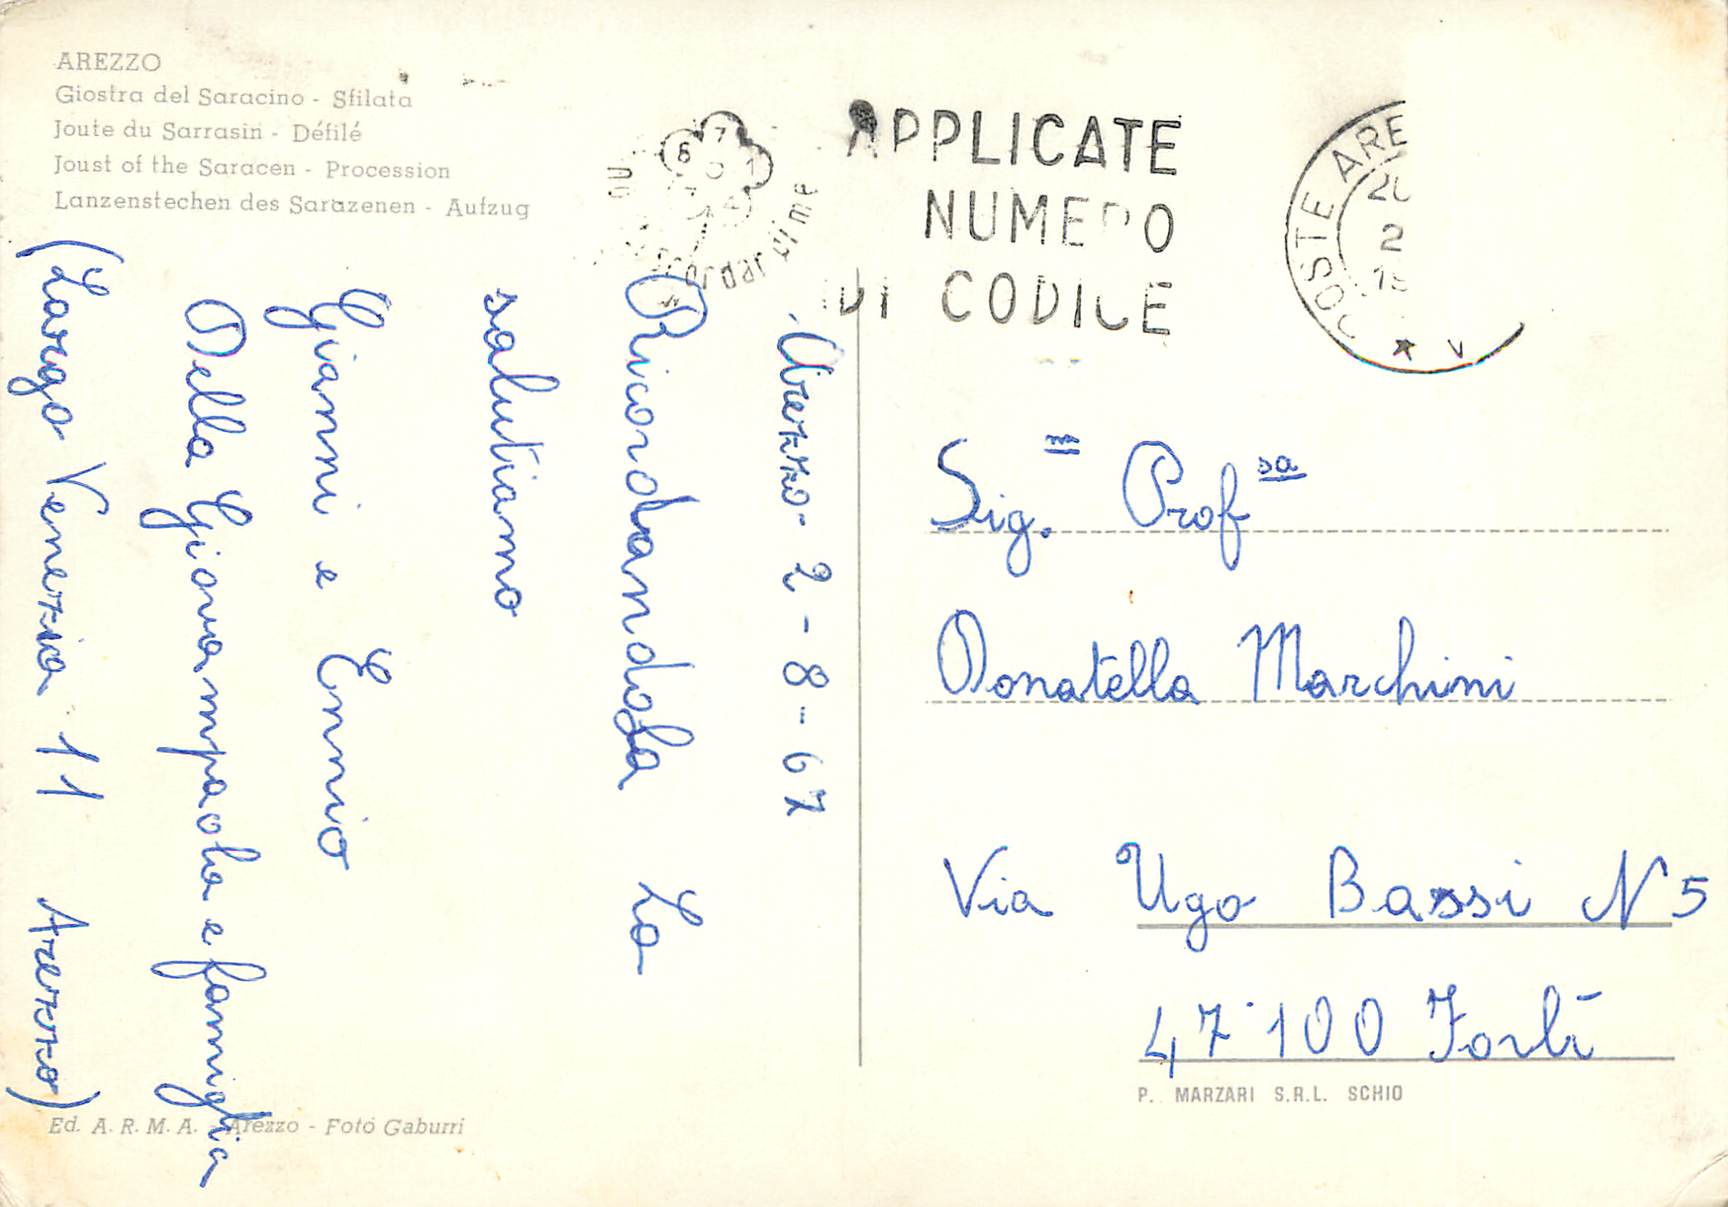 AREZZO
Giostra del Saracino - Sfilata
Joute du Sarrasin - Défilé
Joust of the Saracen - Procession
Lanzenstechen des Sarazenen - Aufzug
APPLICATE
NUMERO
DI CODICE
POSTE ARE
Arezzo - 2 - 8 - 67
Ricordandola La
salutiamo
Gianni e Ennio
Della Giovampaola e famiglia
(Largo Venezia 11 Arezzo)
Sig.na Prof sa
Donatella Marchini
Via Ugo Bassi N 5
47100 Forlì
P. MARZARI S.R.L. SCHIO
Ed. A. R. M. A. - Arezzo - Foto Gaburri